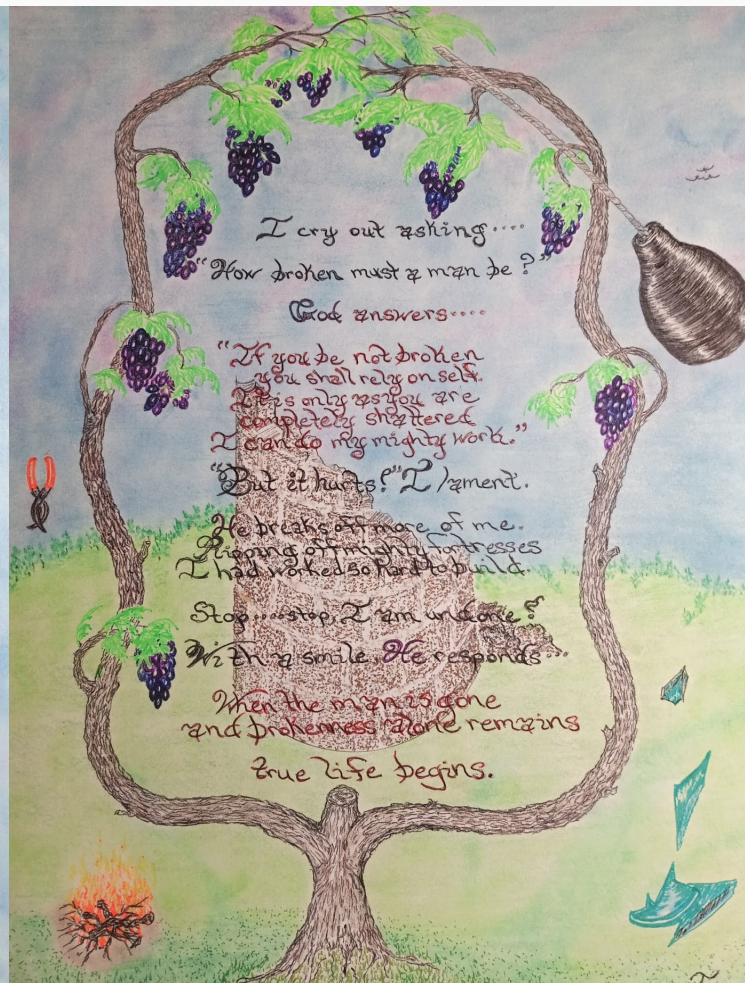 I cry out asking....
"How broken must a man be?"
God answers....
"If you be not broken
you shall rely on self.
It is only as you are
completely shattered
I can do my mighty work."
"But it hurts?" I lament.
He breaks off more of me.
Ripping off mighty fortresses
I had worked so hard to build.
Stop....stop, I am undone?
With a smile, He responds...
When the man is gone
and brokenness alone remains
true life begins.